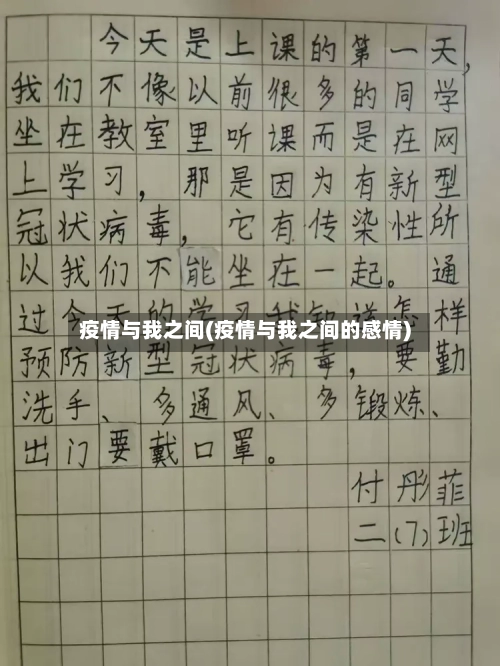 今天是上课的第一天，
我们不像以前很多的同学
坐在教室里听课而是在网
上学习，那是因为有新型
冠状病毒，它有传染性所
以我们不能坐在一起。通
过今天的学习我知道怎样
疫情与我之间(疫情与我之间的感情)
预防新型冠状病毒，要勤
洗手、多通风、多锻炼、
出门要戴口罩。
付彤菲
二(7)班